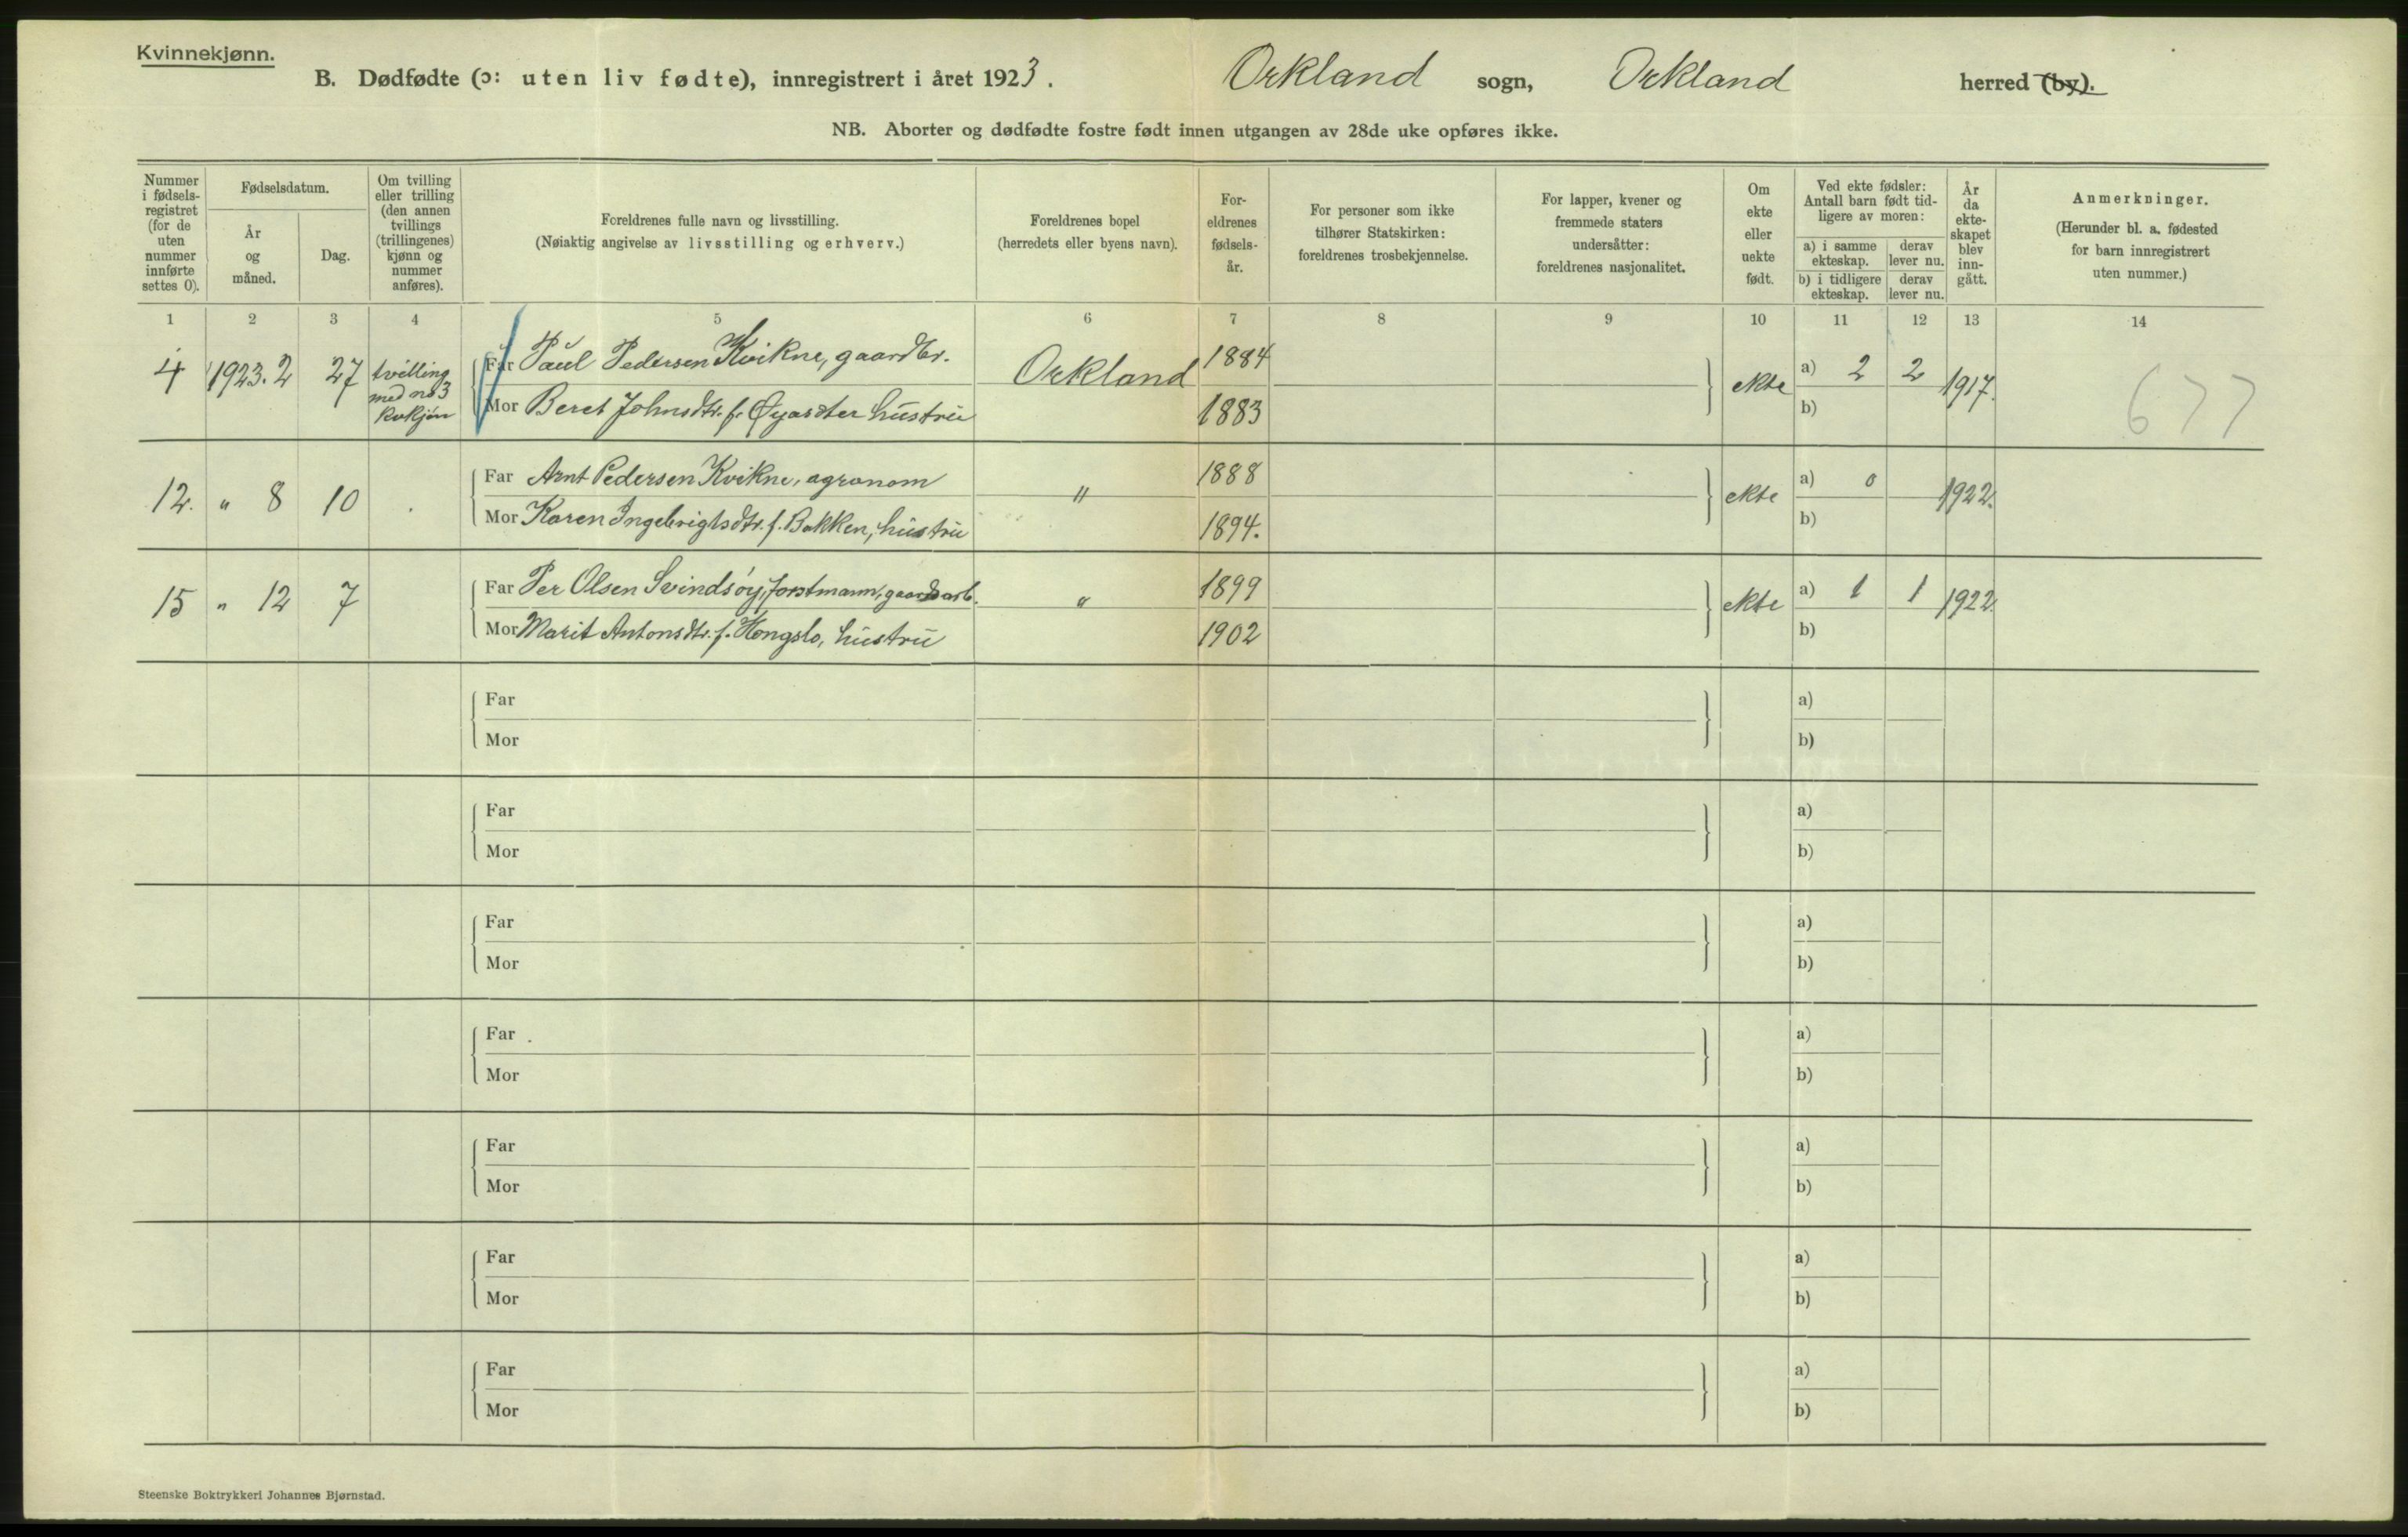 Kvinnekjønn.
B. Dødfødte (ɔ: uten liv fødte), innregistrert i året 1923. Orkland sogn, Orkland herred (by).
NB. Aborter og dødfødte fostre født innen utgangen av 28de uke opføres ikke.
Nummer
i fødsels-
registret
(for de
uten
nummer
innførte
settes 0).
Fødselsdatum.
År
og
måned.
Dag.
Om tvilling
eller trilling
(den annen
tvillings
(trillingenes)
kjønn og
nummer
anføres).
Foreldrenes fulle navn og livsstilling.
(Nøiaktig angivelse av livsstilling og erhverv.)
Foreldrenes bopel
(herredets eller byens navn).
For-
eldrenes
fødsels-
år.
For personer som ikke
tilhører Statskirken:
foreldrenes trosbekjennelse.
For lapper, kvener og
fremmede staters
undersåtter:
foreldrenes nasjonalitet.
Om
ekte
eller
uekte
født.
Ved ekte fødsler:
Antall barn født tid-
ligere av moren:
a) i samme
ekteskap.
derav
lever nu.
b) i tidligere
ekteskap.
derav
lever nu.
År
da
ekte-
skapet
blev
inn-
gått.
Anmerkninger.
(Herunder bl. a. fødested
for barn innregistrert
uten nummer.)
1 2 3 4 5 6 7 8 9 10 11 12 13 14
4 1923. 2 27 tvilling
med no 3
kvkjøn
Far Paul Pedersen Kvikne, gaardbr. Orkland 1884 ekte a) 2 2 1917. 677
Mor Beret Johnsdtr. f. Øyasæter hustru 1883 b)
12. " 8 10
Far Arnt Pedersen Kvikne, agronom " 1888 ekte a) 0 1922.
Mor Karen Ingebrigtsdtr. f. Bakken, hustru 1894. b)
15 " 12 7
Far Per Olsen Svindsøy, forstmann, gaardsarb. " 1899 ekte a) 1 1 1922.
Mor Marit Antonsdtr. f. Hongslo, hustru 1902 b)
Far a)
Mor b)
Far a)
Mor b)
Far a)
Mor b)
Far a)
Mor b)
Far a)
Mor b)
Far a)
Mor b)
Far a)
Mor b)
Steenske Boktrykkeri Johannes Bjørnstad.